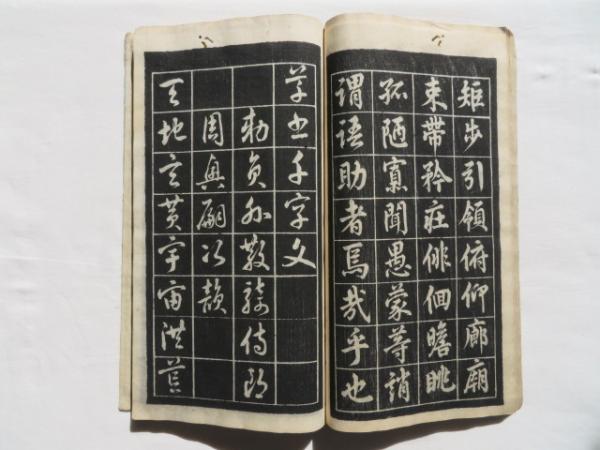 矩步引領俯仰廊廟
束帶矜莊俳佪瞻眺
孤陋寡聞愚蒙等誚
謂語助者焉哉乎也
草書千字文
勅員外散騎侍郎
周興嗣次韻
天地玄黃宇宙洪荒